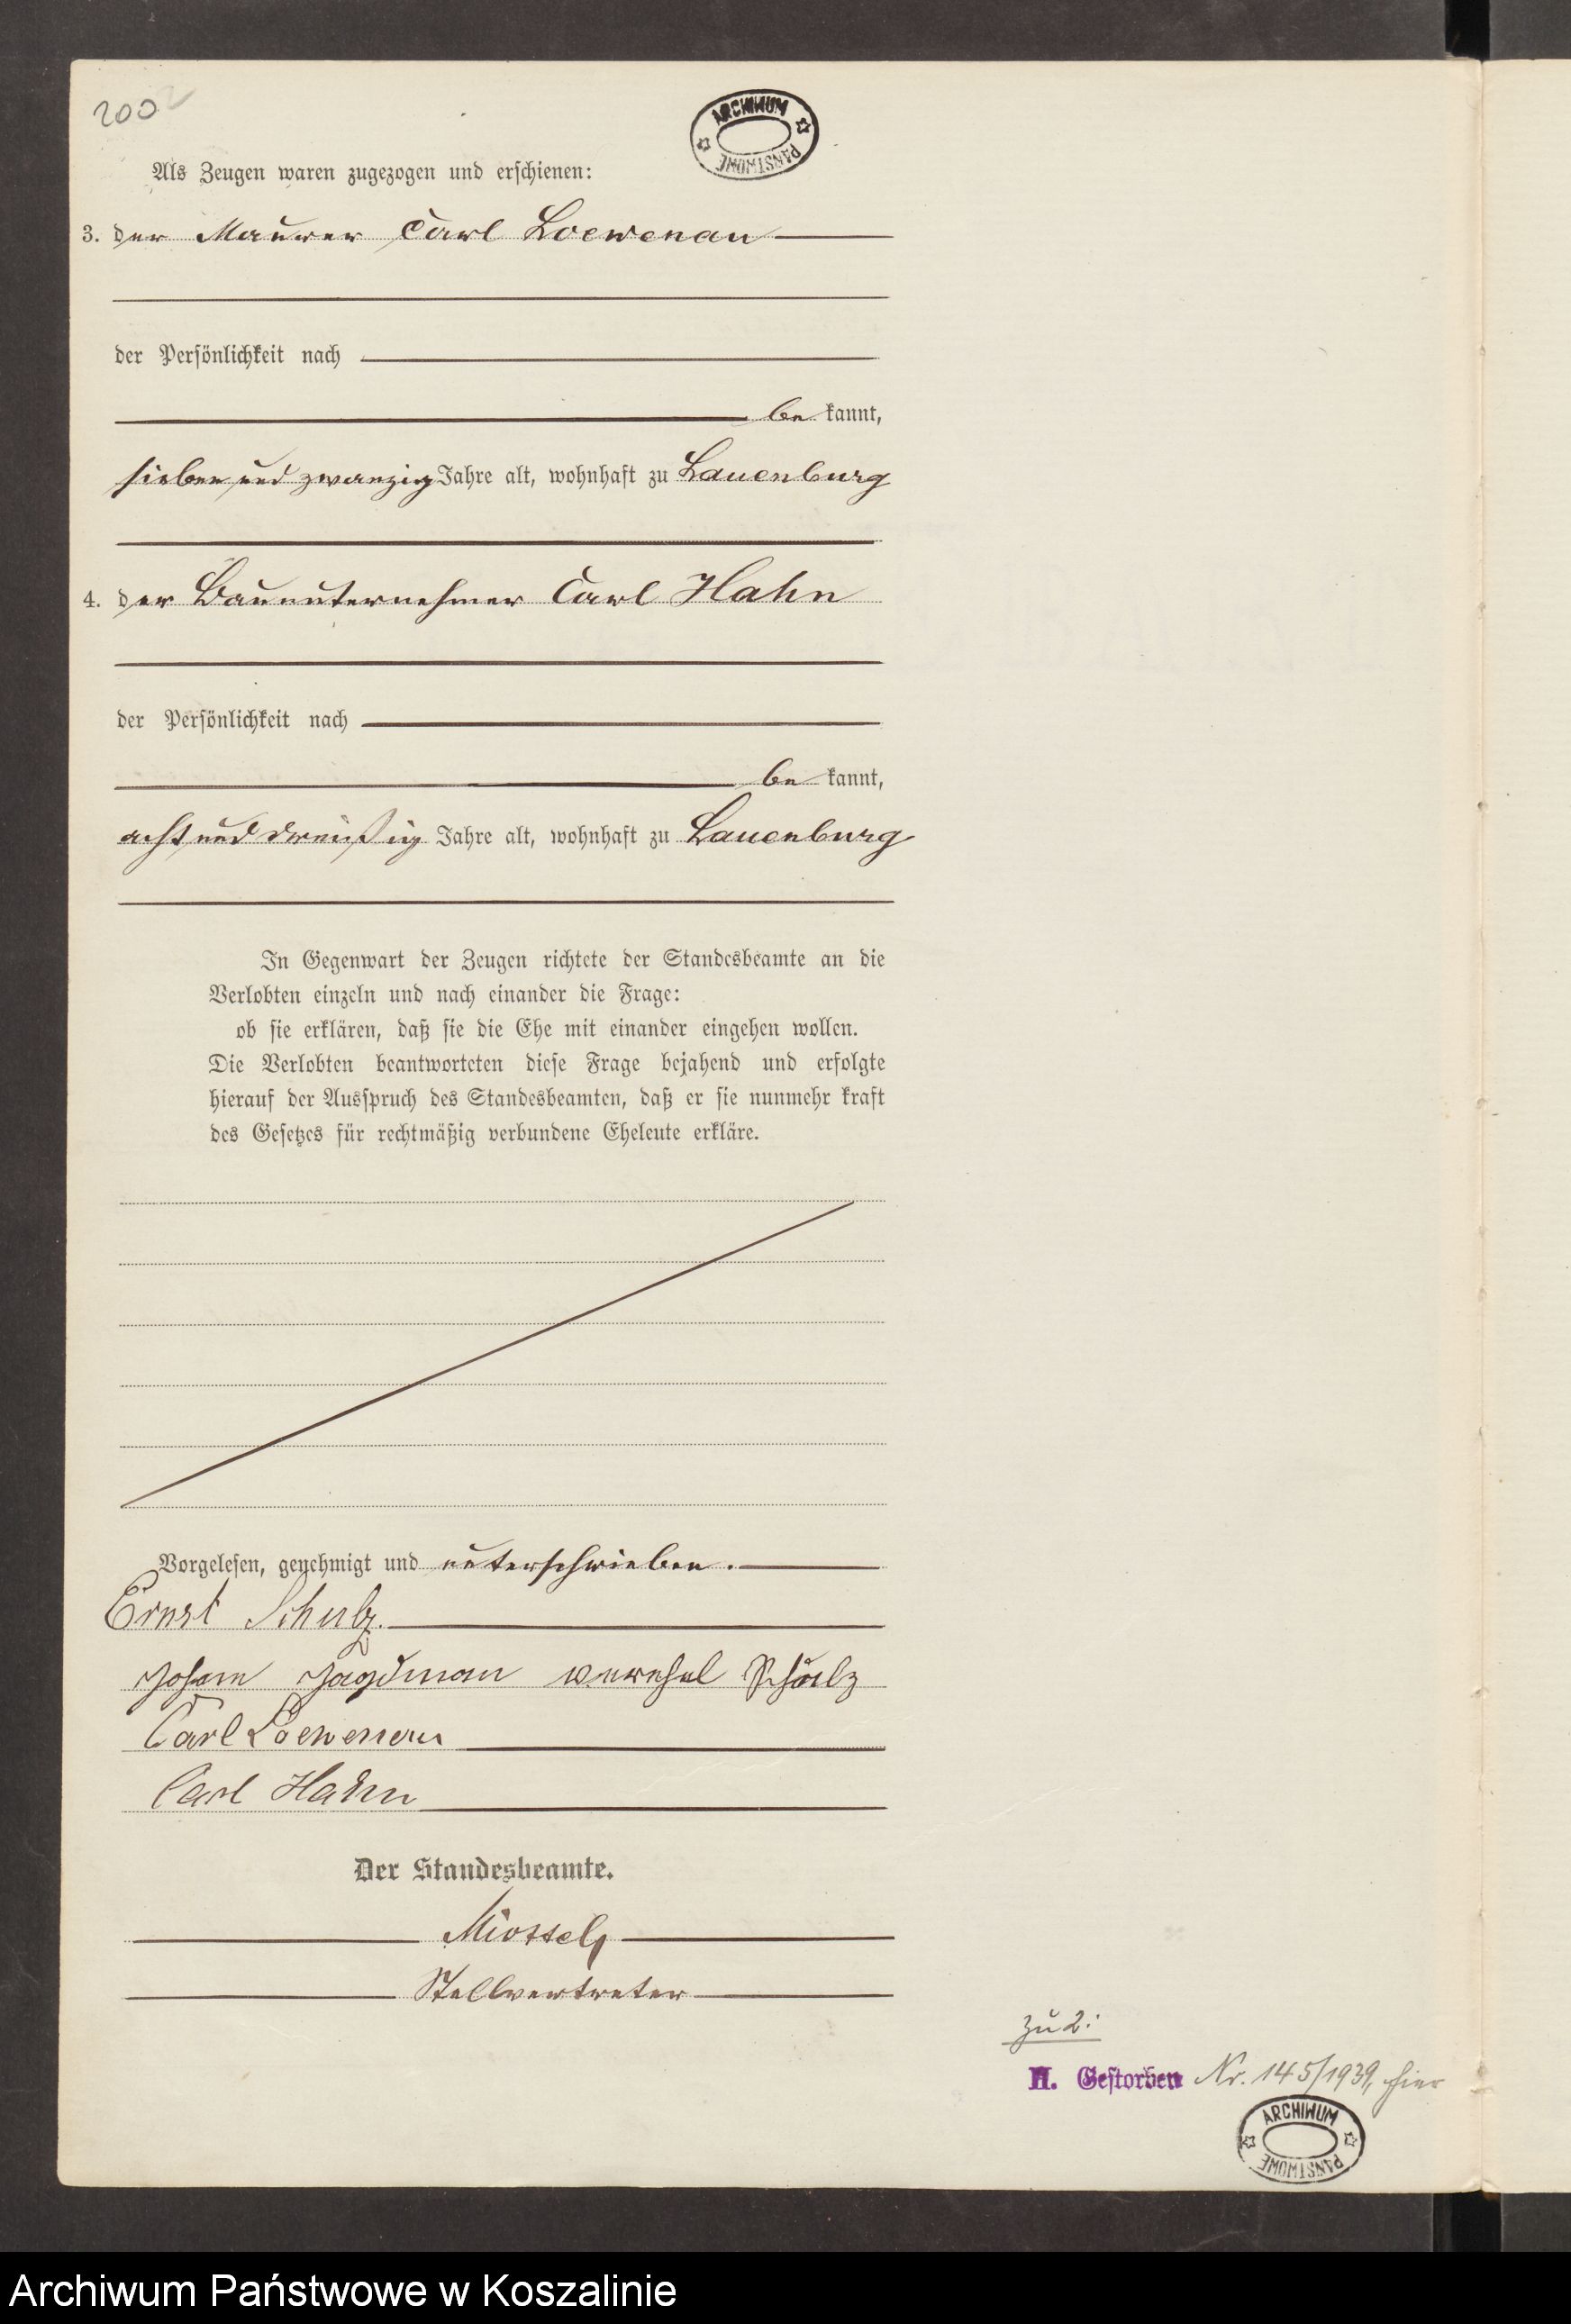 200
ARCHIWUM PAŃSTWOWE
Als Zeugen waren zugezogen und erschienen:
3. der Maurer Carl Loewenau
der Persönlichkeit nach
be kannt,
sieben und zwanzig Jahre alt, wohnhaft zu Lauenburg
4. der Bauunternehmer Carl Hahn
der Persönlichkeit nach
be kannt,
acht und dreißig Jahre alt, wohnhaft zu Lauenburg
In Gegenwart der Zeugen richtete der Standesbeamte an die
Verlobten einzeln und nach einander die Frage:
ob sie erklären, daß sie die Ehe mit einander eingehen wollen.
Die Verlobten beantworteten diese Frage bejahend und erfolgte
hierauf der Ausspruch des Standesbeamten, daß er sie nunmehr kraft
des Gesetzes für rechtmäßig verbundene Eheleute erkläre.
Vorgelesen, genehmigt und unterschrieben.
Ernst Schulz.
Schulz
Carl Loewenau
Carl Hahn
Der Standesbeamte.
Stellvertreter
zu 2:
II. Gestorben Nr. 145/1939, hier
ARCHIWUM PAŃSTWOWE
Archiwum Państwowe w Koszalinie